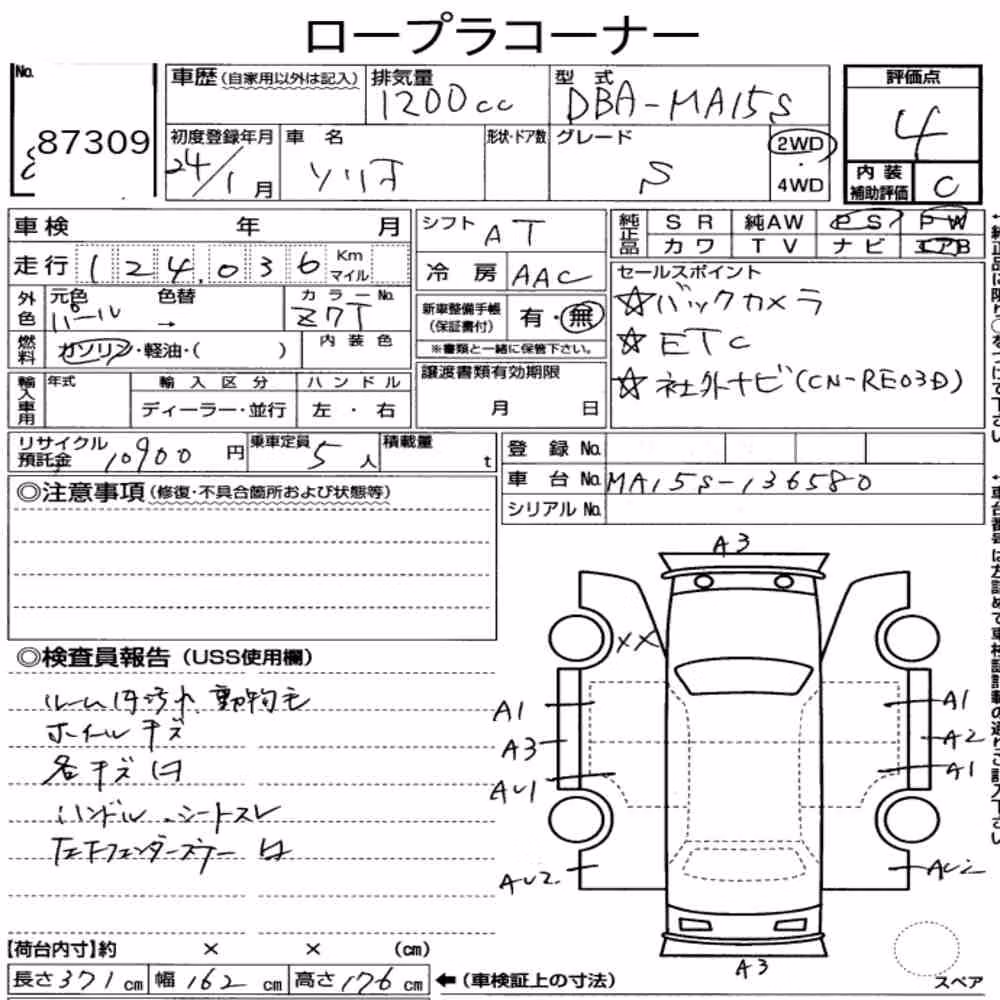 ロープラコーナー
No.
87309
車歴(自家用以外は記入)
排気量
1200cc
型式
DBA-MA15S
評価点
4
初度登録年月
24/1月
車名
ソリオ
形状・ドア数
グレード
S
2WD
4WD
内装
補助評価
C
車検 年 月
走行 124,036 Km
マイル
シフト AT
冷房 AAC
純正品
SR 純AW PS PW
カワ TV ナビ エアB
外色
元色 色替
パール →
カラーNo.
Z7T
新車整備手帳
(保証書付)
有・無
※書類と一緒に保管下さい。
セールスポイント
☆バックカメラ
☆ETC
☆社外ナビ(CN-RE03D)
燃料
ガソリン・軽油・( )
内装色
輸入車用
年式
輸入区分
ハンドル
ディーラー・並行
左・右
譲渡書類有効期限
月 日
リサイクル
預託金 10900円
乗車定員 5人
積載量 t
登録No.
車台No. MA15S-136580
シリアルNo.
◎注意事項(修復・不具合箇所および状態等)
◎検査員報告(USS使用欄)
ルーム内汚れ、動物毛
ホイールキズ
各キズ凹
ハンドル、シートスレ
A3
XX
A1
A3
AU1
AU2
A1
A2
A1
AU2
A3
スペア
【荷台内寸】約 × × (cm)
長さ371cm 幅162cm 高さ176cm
←(車検証上の寸法)
←純正品に限り○をつけて下さい